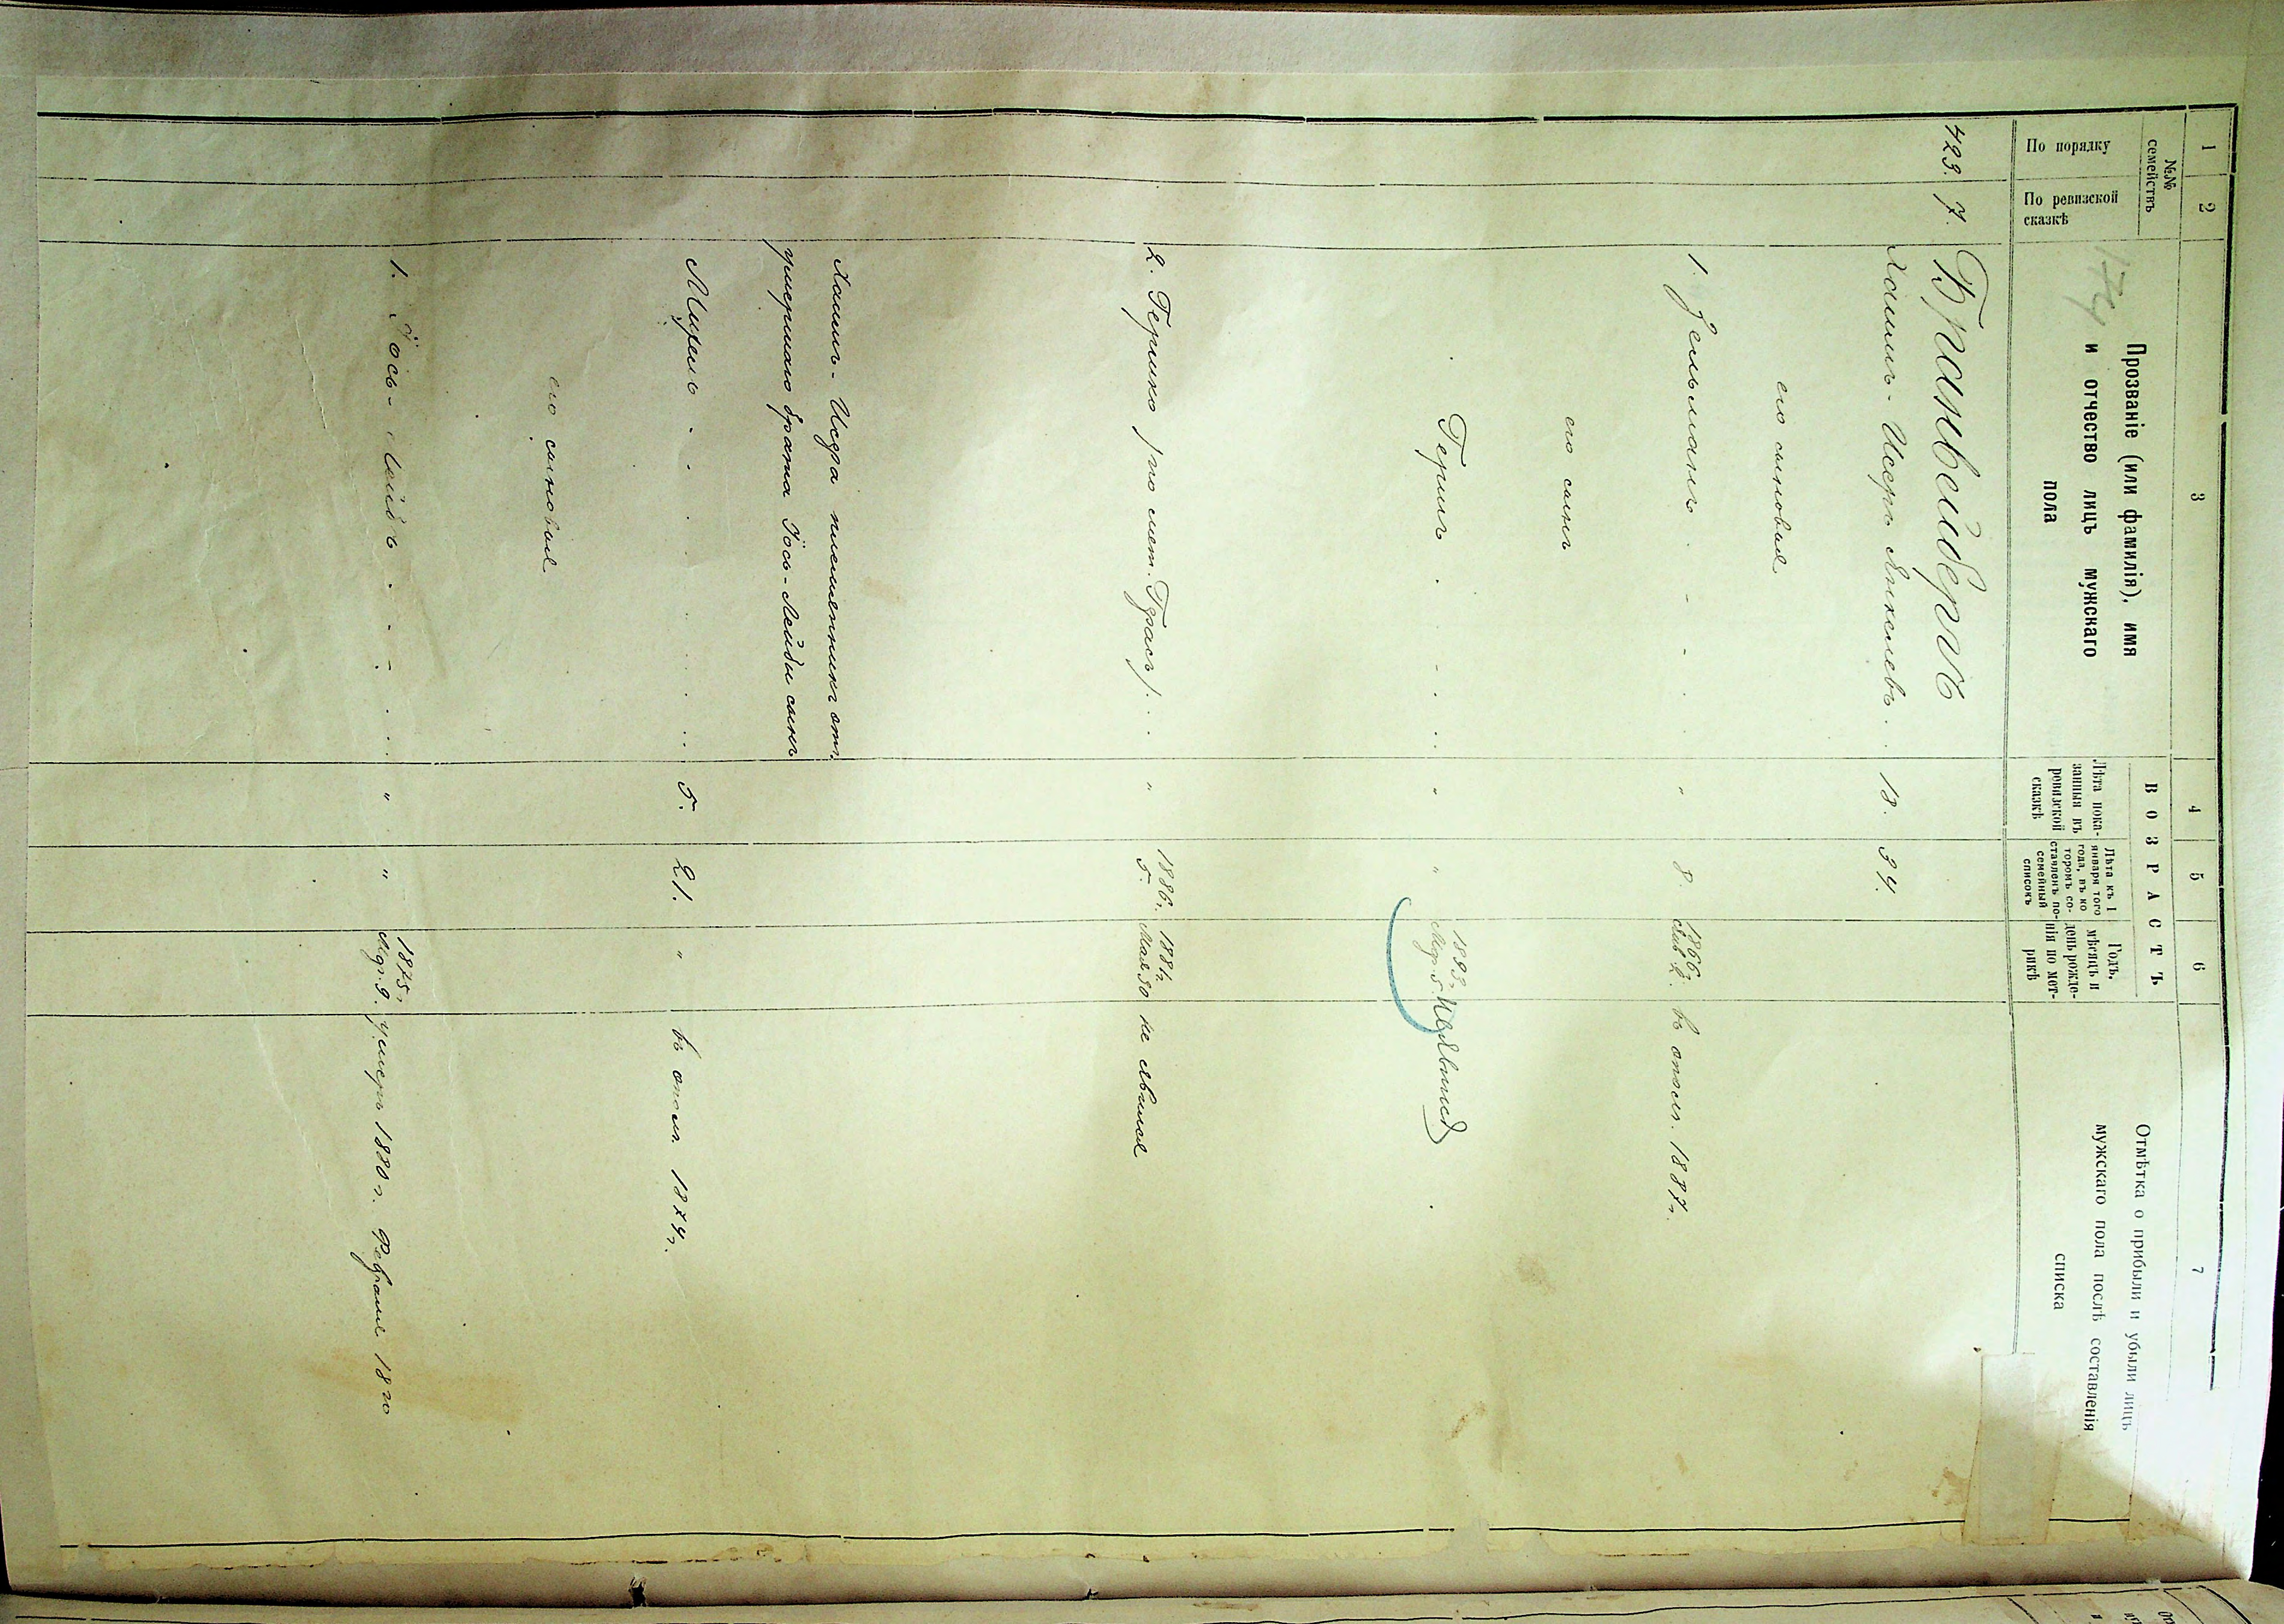 1 2 3 4 5 6 7
№№ семействъ
По порядку
По ревизской сказкѣ
Прозваніе (или фамилія), имя
и отчество лицъ мужскаго
пола
174
ВОЗРАСТЪ
Лѣта пока-
занныя въ
ревизской
сказкѣ
Лѣта къ 1
января того
года, въ ко
торомъ со-
ставленъ по-
семейный
списокъ
Годъ,
мѣсяцъ и
день рожде-
нія по мет-
рикѣ
Отмѣтка о прибыли и убыли лицъ
мужскаго пола послѣ составленія
списка
423. 7. Бранвейбергъ
Хаимъ-Исеръ Янкелевъ . . 18. 34.
его сыновья
1. Зельманъ . - - . . " 8. 1866 г. въ ополч. 1887 г.
его сынъ
Гершъ . . - . . . " " 1893 г. Мар. 5. Неявился
2. Гершко (по мет. ) . . " 1886 г. 5. 1881 г. Мая 30 не явился
Хаимъ-Исера племянникъ отъ
умершаго брата Іось-Лейбы сынъ
Михель - . . . . . . . 5. 21. " въ ополч. 1874 г.
его сыновья
1. Іось-Лейбъ . - - . . . " " 1875 г. Мар. 9. умеръ 1880 г. Февраля 18 го